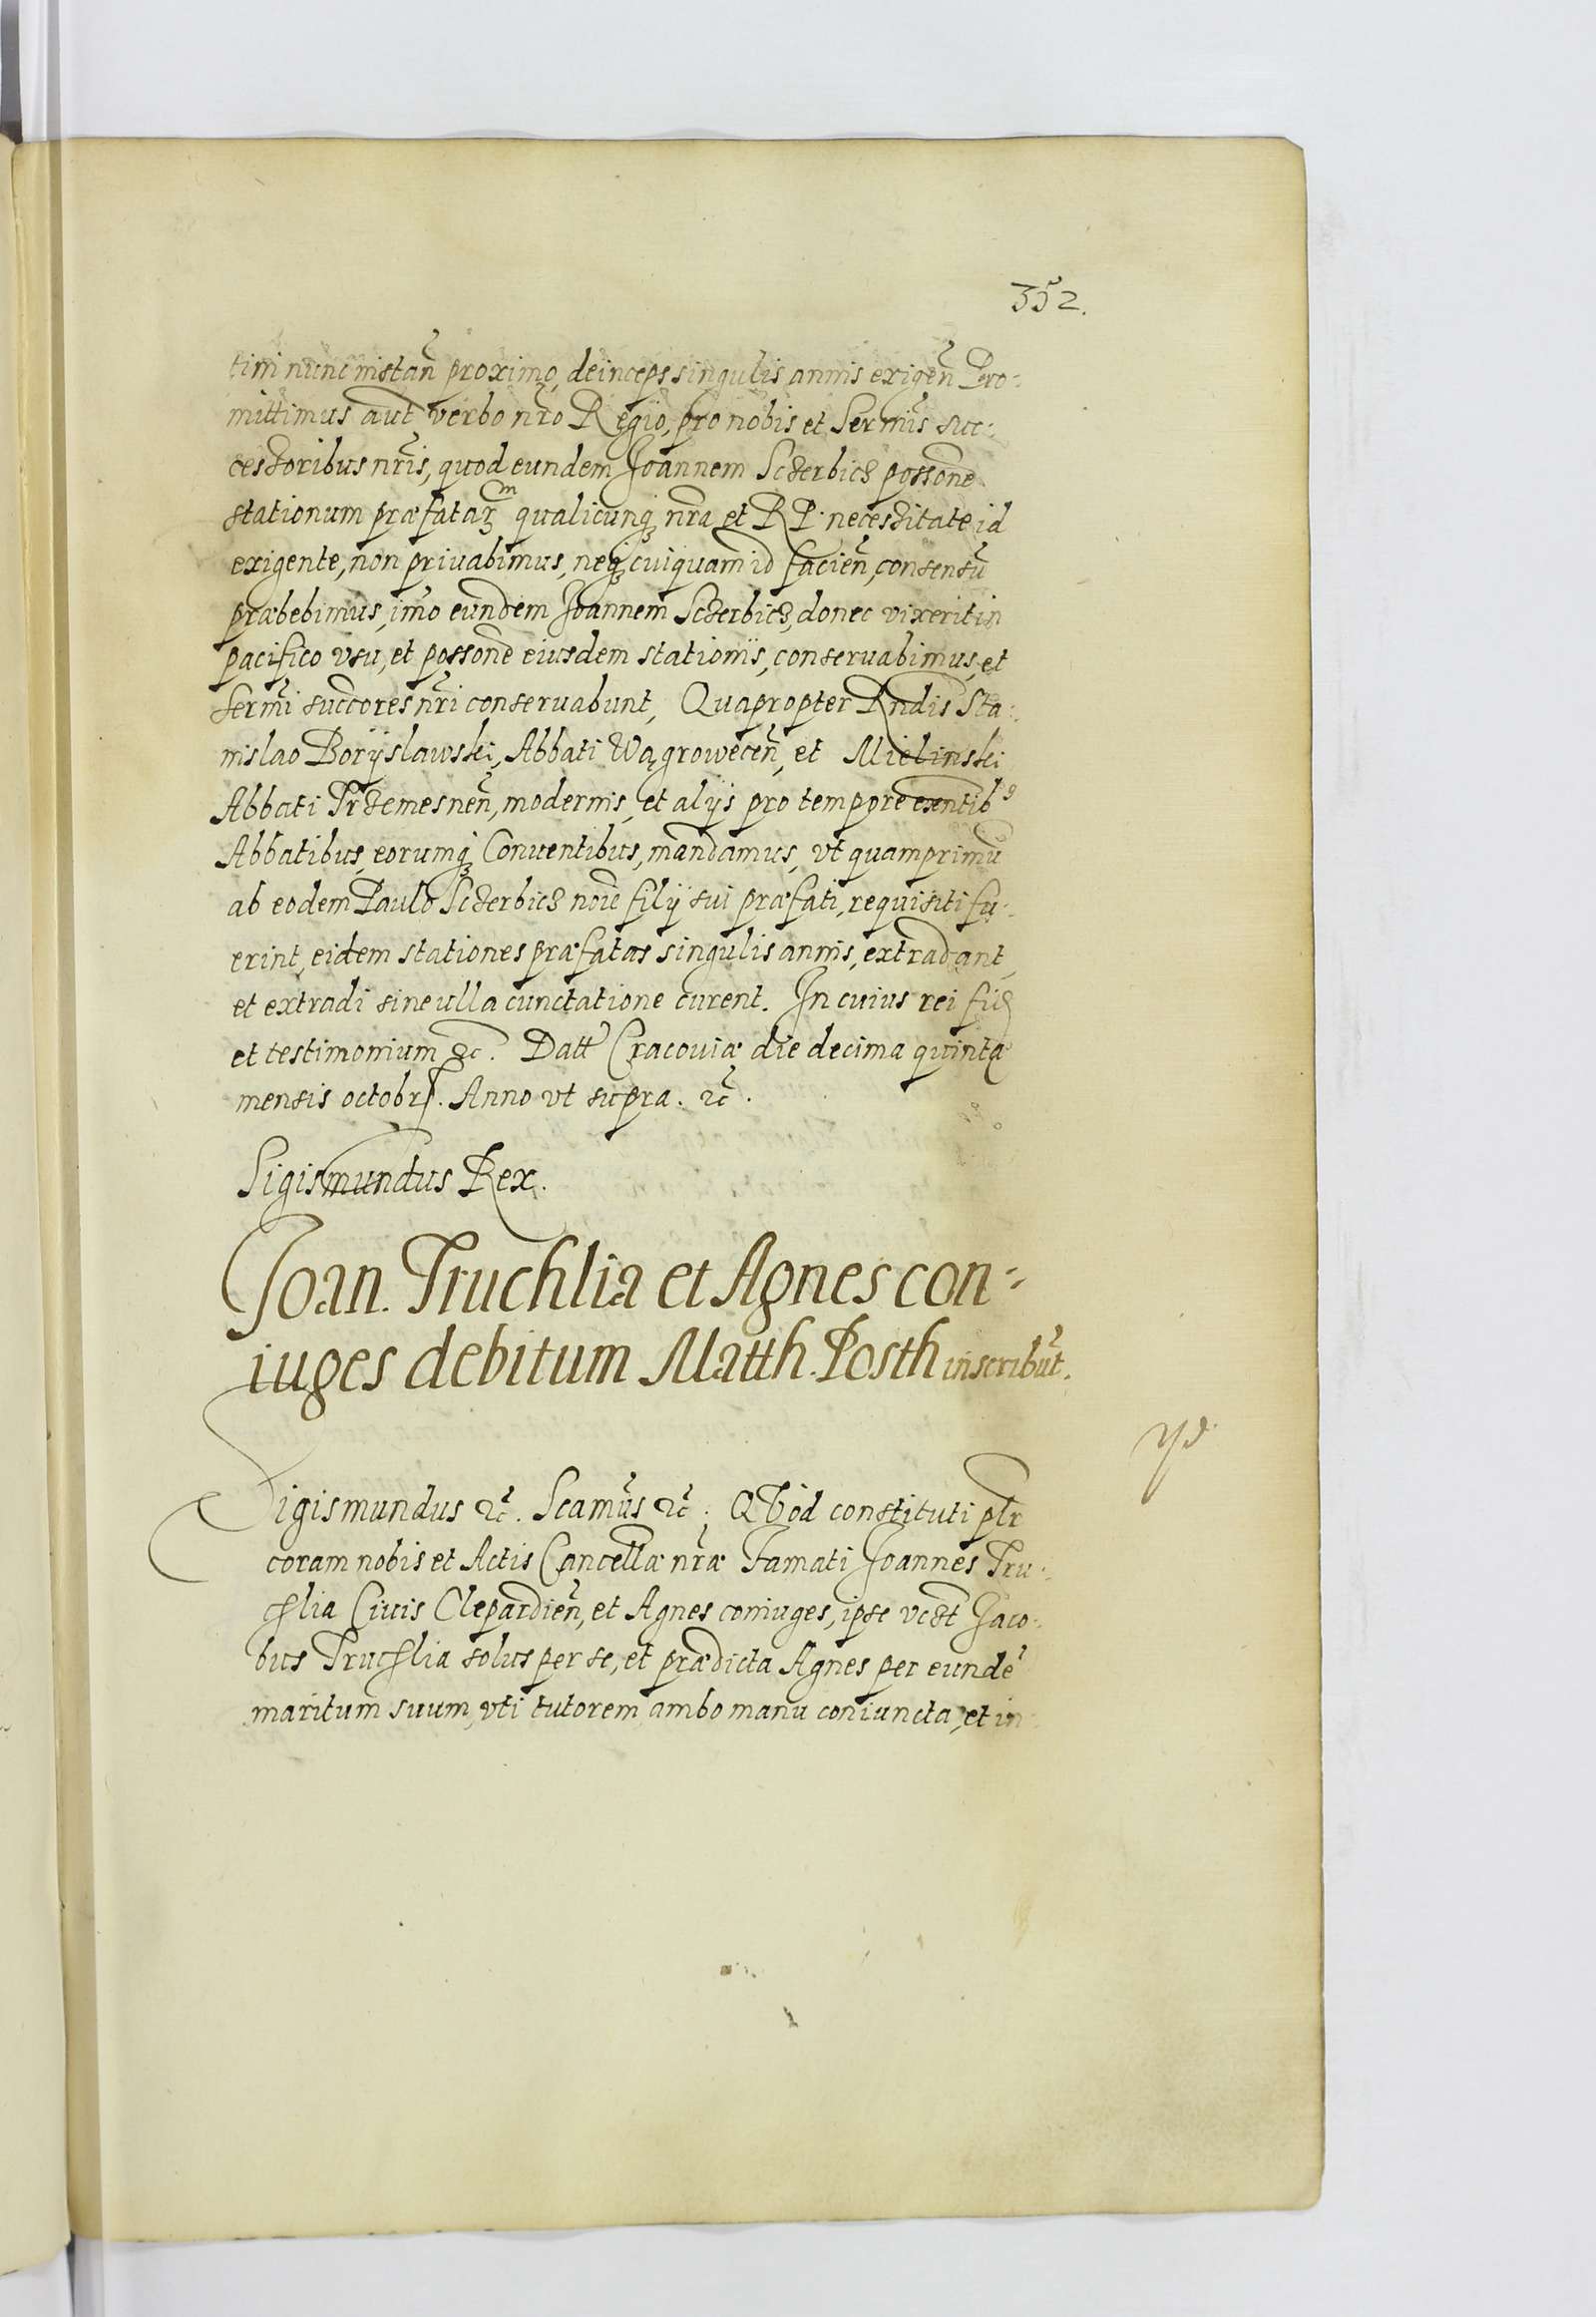 352.
tini nunc instan̄ proximo, deinceps singulis annis exigen̄ Pro-
mittimus aut̄ verbo nr̄o Regio, pro nobis et Sermīs suc-
cessoribus nrīs, quod eundem Joannem Sczerbicz possone
stationum præfatarum qualicunq nrā et RP. necessitate id
exigente, non privabimus, neq cuiquam id facien̄, consensū
præbebimus, imo eundem Joannem Sczerbicz, donec vixerit in
pacifico vsu, et possone eiusdem stationis, conservabimus, et
sermī succores nrī conservabunt, Quapropter Rndis Sta-
nislao Borÿslawski, Abbati Wągrowecen̄, et Mielinski
Abbati Trzemesnen̄, modernis, et alÿs pro tempore exentib9
Abbatibus, eorumq Conventibus, mandamus, vt quamprimū
ab eodem Paulo Sczerbicz noīe filÿ sui præfati, requisiti fu-
erint, eidem stationes præfatas singulis annis, extradant,
et extradi sine ulla cunctatione curent. In cuius rei fid
et testimonium &c. Datt Cracoviæ die decima quinta
mensis octobr. Anno vt supra. &c.
Sigismundus Rex.
Joan. Truchlia et Agnes con-
iuges debitum Matth. Posth inscribūt.
Sigismundus &c. Scamūs &c. Qvod constituti plr
coram nobis et Actis Cancellæ nrǣ Famati Joannes Tru-
chlia Civis Clepardien̄, et Agnes coniuges, ipse vczt Jaco-
bus Truchlia solus per se, et prædicta Agnes per eundē
maritum suum, vti tutorem ambo manu coniuncta, et in